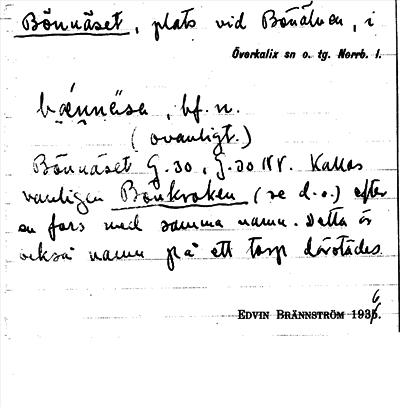 Bönnäset, plats vid Bönälven, i
Överkalix sn o. tg. Norrb. l.
bǽnnäsa, bf. n.
(ovanligt.)
Bönnäset G. 30, J. 30 NV. Kallas
vanligen Bönkroken (se d. o.) efter
en fors med samma namn. Detta är
också namn på ett torp därstädes.
EDVIN BRÄNNSTRÖM 1936.